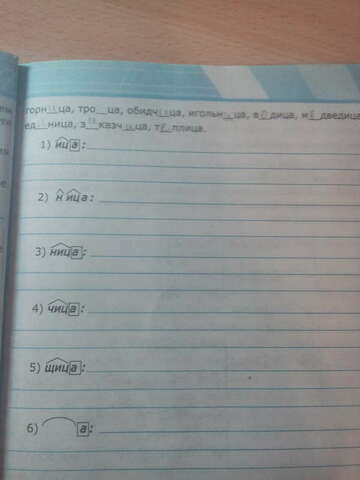 горница, тро__ца, обидчица, игольница, в_о_дица, м_е_дведица
ед__ница, з_а_казчица, т_е_плица.
1) ица:
2) н ица:
3) ница:
4) чица:
5) щица:
6) а: